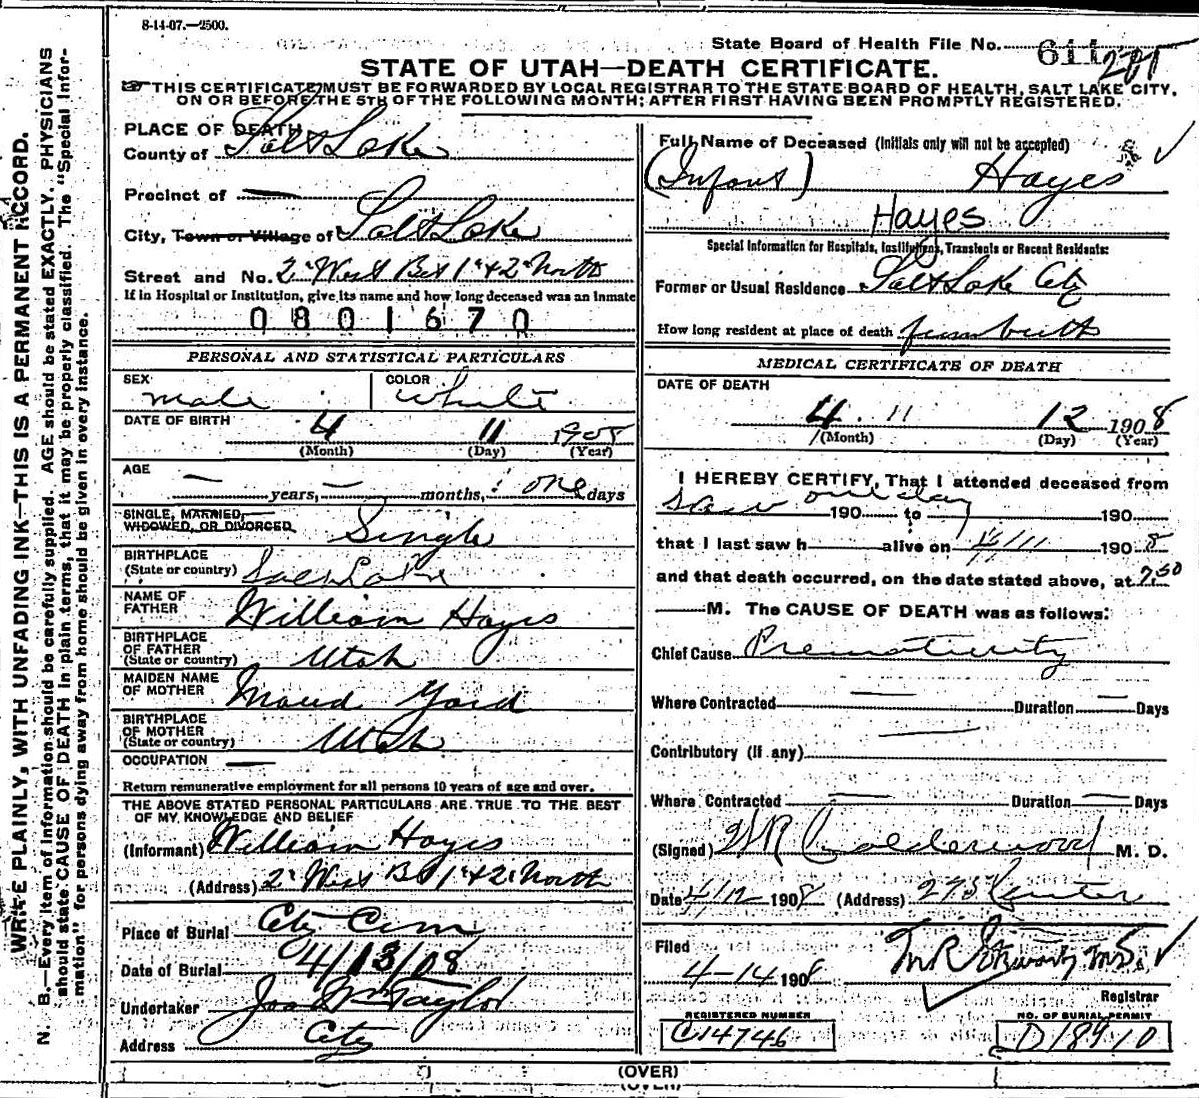 8-14-07.—2500.
State Board of Health File No. 611
STATE OF UTAH—DEATH CERTIFICATE.
☞THIS CERTIFICATE MUST BE FORWARDED BY LOCAL REGISTRAR TO THE STATE BOARD OF HEALTH, SALT LAKE CITY,
ON OR BEFORE THE 5TH OF THE FOLLOWING MONTH; AFTER FIRST HAVING BEEN PROMPTLY REGISTERED.
WRITE PLAINLY, WITH UNFADING INK—THIS IS A PERMANENT RECORD.
N. B.—Every item of information should be carefully supplied. AGE should be stated EXACTLY. PHYSICIANS
should state CAUSE OF DEATH in plain terms, that it may be properly classified. The "Special Infor-
mation" for persons dying away from home should be given in every instance.
PLACE OF DEATH
County of Salt Lake
Precinct of —
City, Town or Village of Salt Lake
Street and No. 2d West Bet 1st & 2d North
If in Hospital or Institution, give its name and how long deceased was an inmate
0 8 0 1 6 7 0
PERSONAL AND STATISTICAL PARTICULARS
SEX male COLOR White
DATE OF BIRTH 4 11 1908
(Month) (Day) (Year)
AGE
— years, — months, one days
SINGLE, MARRIED,
WIDOWED, OR DIVORCED Single
BIRTHPLACE
(State or country) Salt Lake
NAME OF
FATHER William Hayes
BIRTHPLACE
OF FATHER
(State or country) Utah
MAIDEN NAME
OF MOTHER Maud Yard
BIRTHPLACE
OF MOTHER
(State or country) Utah
OCCUPATION —
Return remunerative employment for all persons 10 years of age and over.
THE ABOVE STATED PERSONAL PARTICULARS ARE TRUE TO THE BEST
OF MY KNOWLEDGE AND BELIEF
(Informant) William Hayes
(Address) 2d West Bet 1st & 2d North
Place of Burial City Cem
Date of Burial 4/13/08
Undertaker Jos Wm Taylor
Address City
Full Name of Deceased (Initials only will not be accepted)
(Infant) Hayes
Hayes
Special Information for Hospitals, Institutions, Transients or Recent Residents:
Former or Usual Residence Salt Lake City
How long resident at place of death from birth
MEDICAL CERTIFICATE OF DEATH
DATE OF DEATH
4 11 12 1908
(Month) (Day) (Year)
I HEREBY CERTIFY, That I attended deceased from
saw one day 190 to 190
that I last saw h alive on 4/11 1908
and that death occurred, on the date stated above, at 7.50
— M. The CAUSE OF DEATH was as follows:
Chief Cause Prematurity
Where Contracted — Duration — Days
Contributory (if any) —
Where Contracted — Duration — Days
(Signed) W R Calderwood M. D.
Date 4/12 1908 (Address) 275 Center
Filed
4-14 1908
Registrar
REGISTERED NUMBER
C14746
NO. OF BURIAL PERMIT
D18910
(OVER)
(OVER)